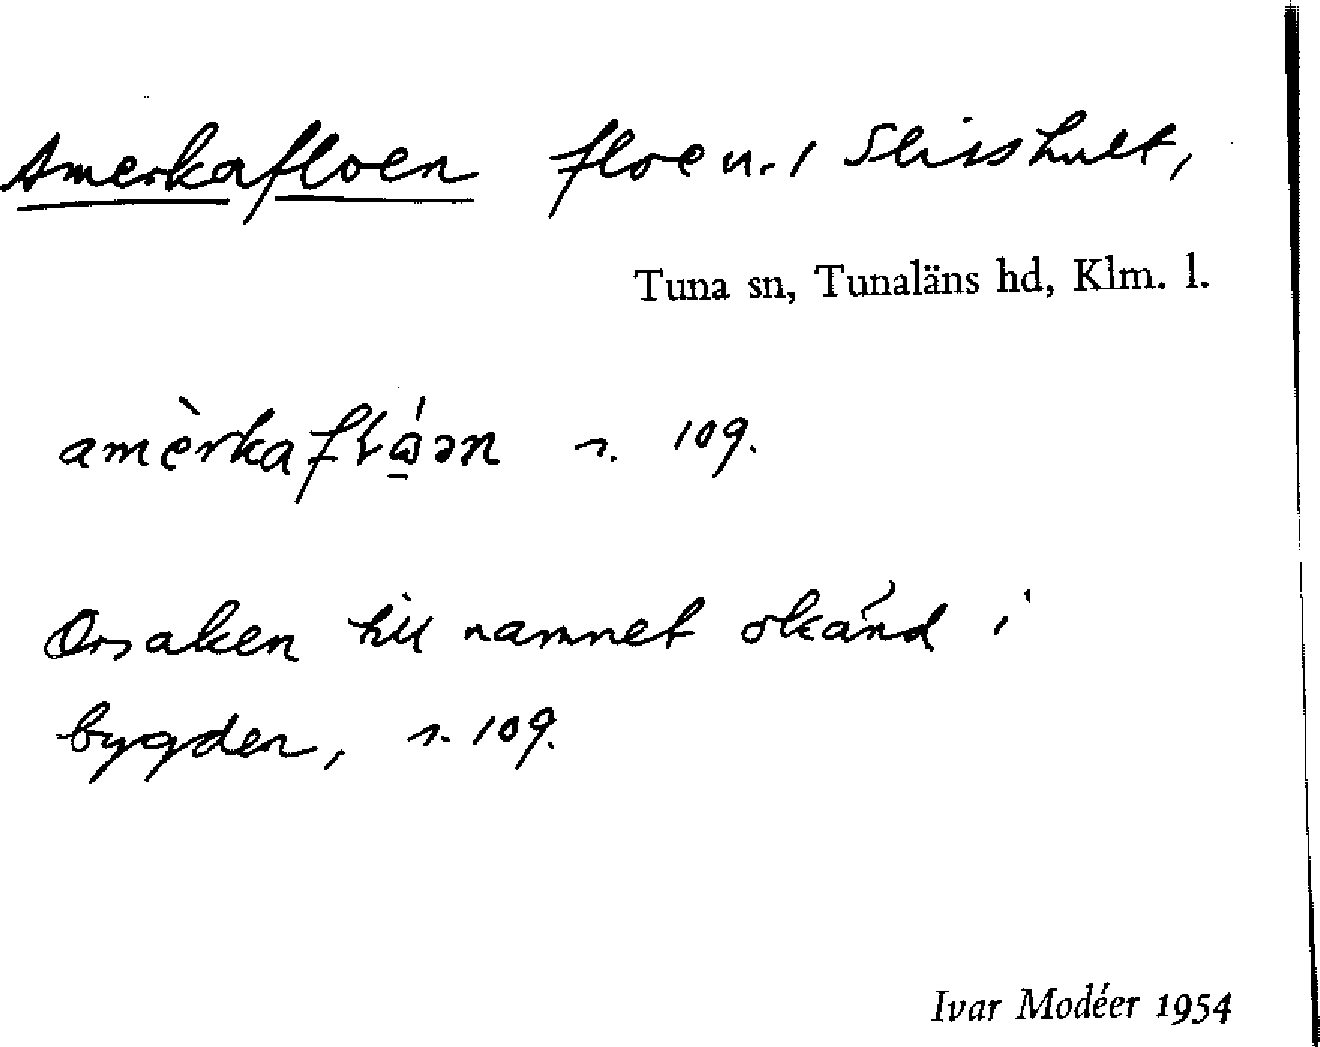 Amerkafloen floe u. / Slisshult,
Tuna sn, Tunaläns hd, Klm. l.
s. 109.
Orsaken till namnet okänd i
bygden, s. 109.
Ivar Modéer 1954